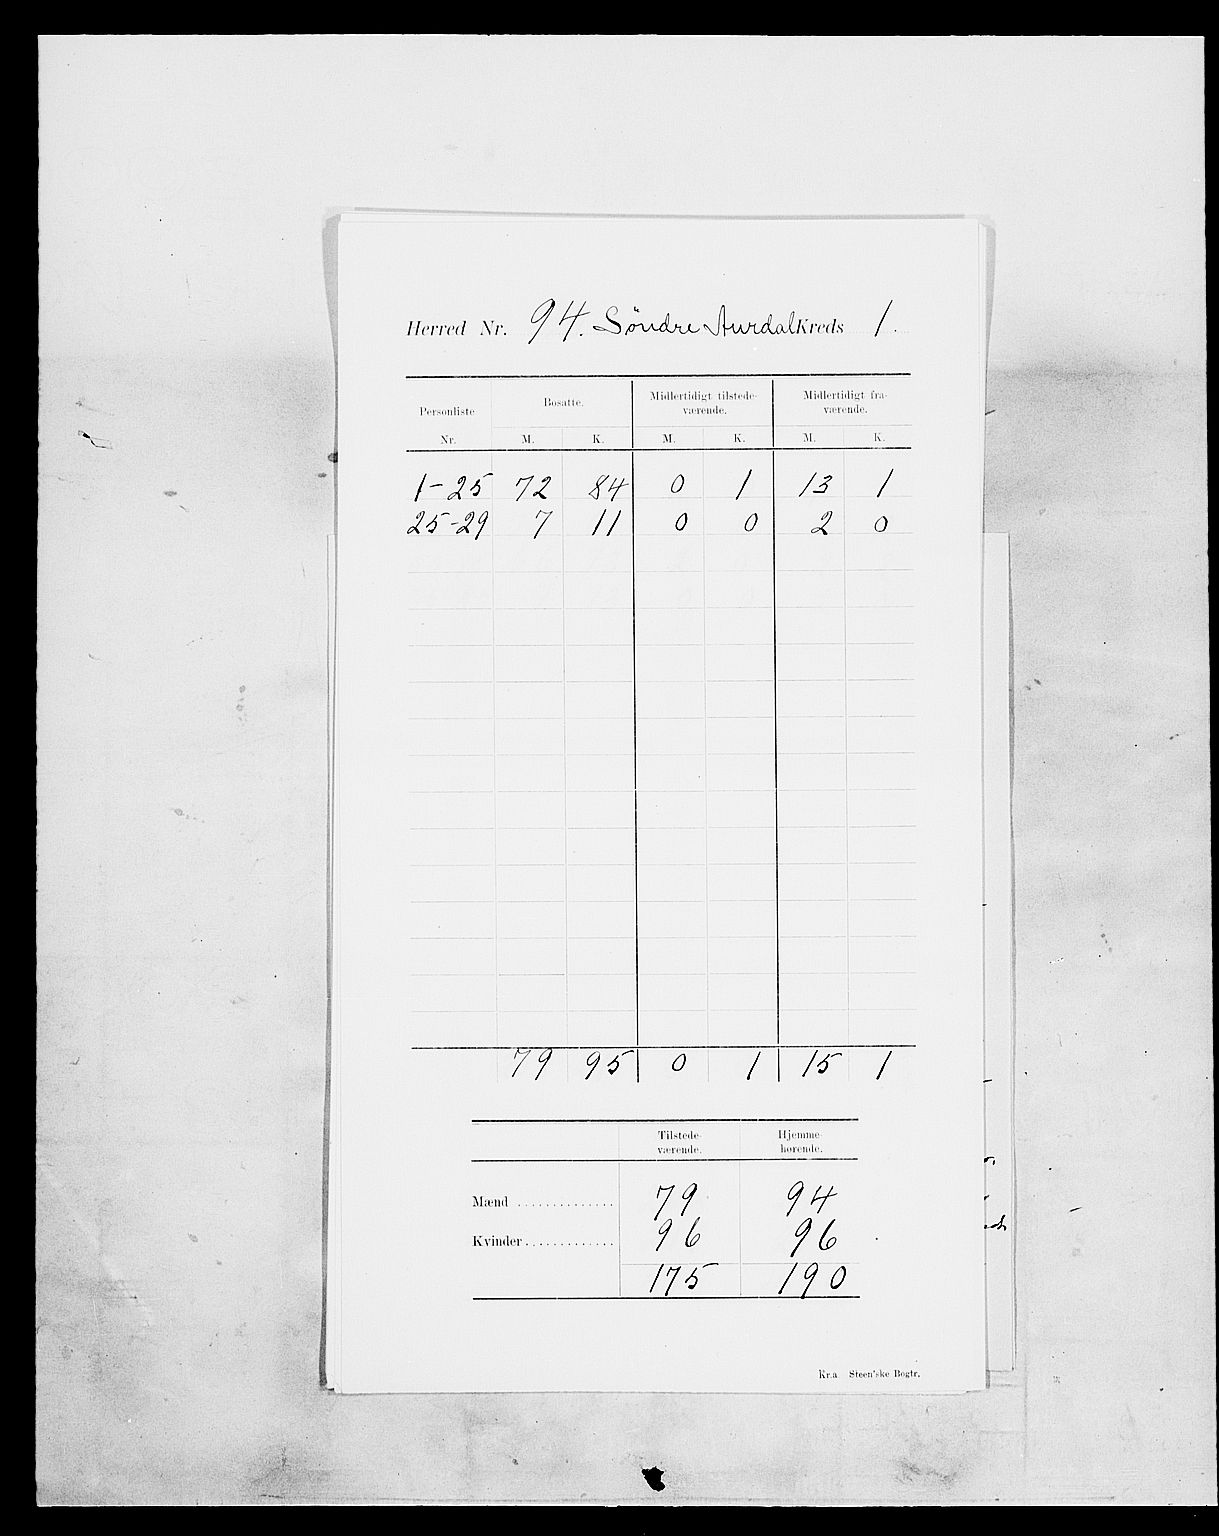 Herred Nr. 94. Söndre Aurdal Kreds 1.
Personliste Bosatte. Midlertidigt tilstede- Midlertidigt fra-
værende. værende.
Nr. M. K. M. K. M. K.
1-25 72 84 0 1 13 1
25-29 7 11 0 0 2 0
79 95 0 1 15 1
Tilstede- Hjemme-
værende. hørende.
Mænd .............. 79 94
Kvinder ............. 96 96
175 190
Kr.a Steen'ske Bogtr.